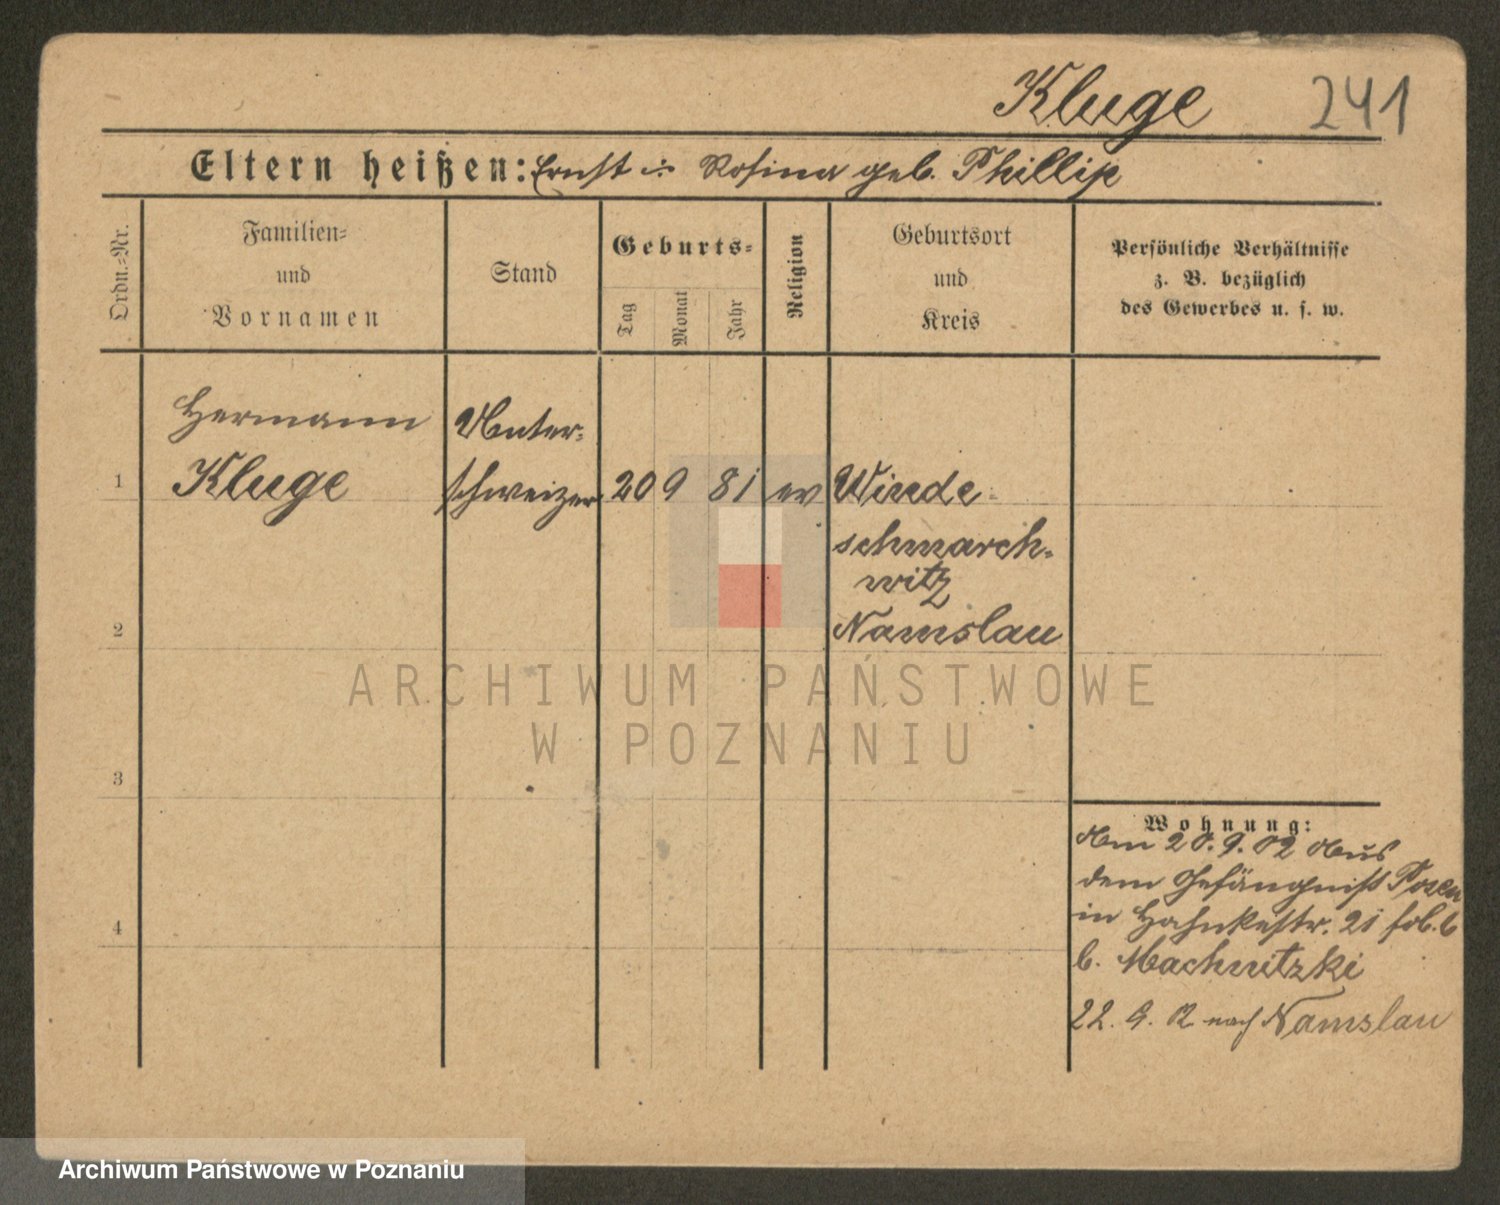 Kluge 241
Eltern heißen: Ernst u. Rosina geb. Phillip
Ordn.-Nr.
Familien-
und
Vornamen
Stand
Geburts-
Tag
Monat
Jahr
Religion
Geburtsort
und
Kreis
Persönliche Verhältnisse
z. B. bezüglich
des Gewerbes u. s. w.
Hermann
1 Kluge
Unter-
schweizer
20 9 81 ev
Winde-
schmarch-
witz
Namslau
2
3
4
Wohnung:
Am 20.9.02 Aus
dem Gefängniß Posen
in Hahnkestr. 21
b. Machnitzki
22. 9. 02 nach Namslau
ARCHIWUM PAŃSTWOWE
W POZNANIU
Archiwum Państwowe w Poznaniu